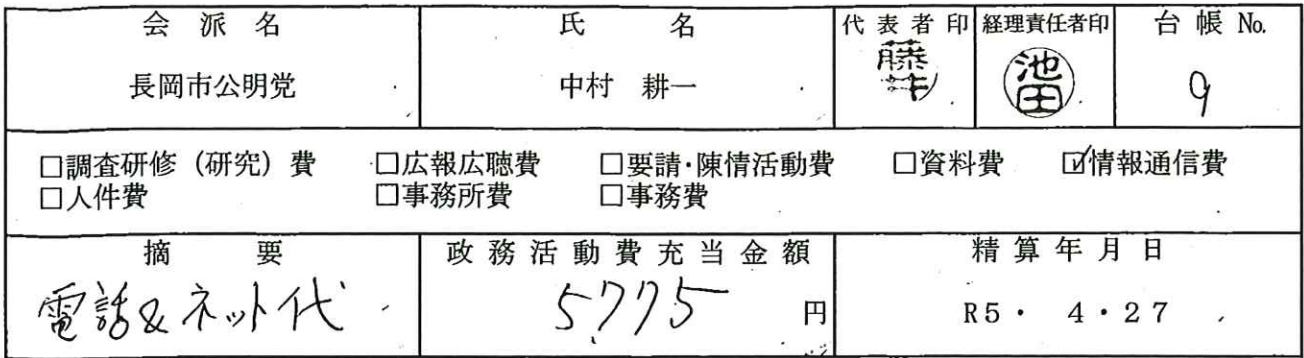 会派名 氏名 代表者印 経理責任者印 台帳No.
長岡市公明党 中村 耕一 池田 9
□調査研修（研究）費 □広報広聴費 □要請・陳情活動費 □資料費 ☑情報通信費
□人件費 □事務所費 □事務費
摘要 政務活動費充当金額 精算年月日
電話&ネット代 5775 円 R5・4・27